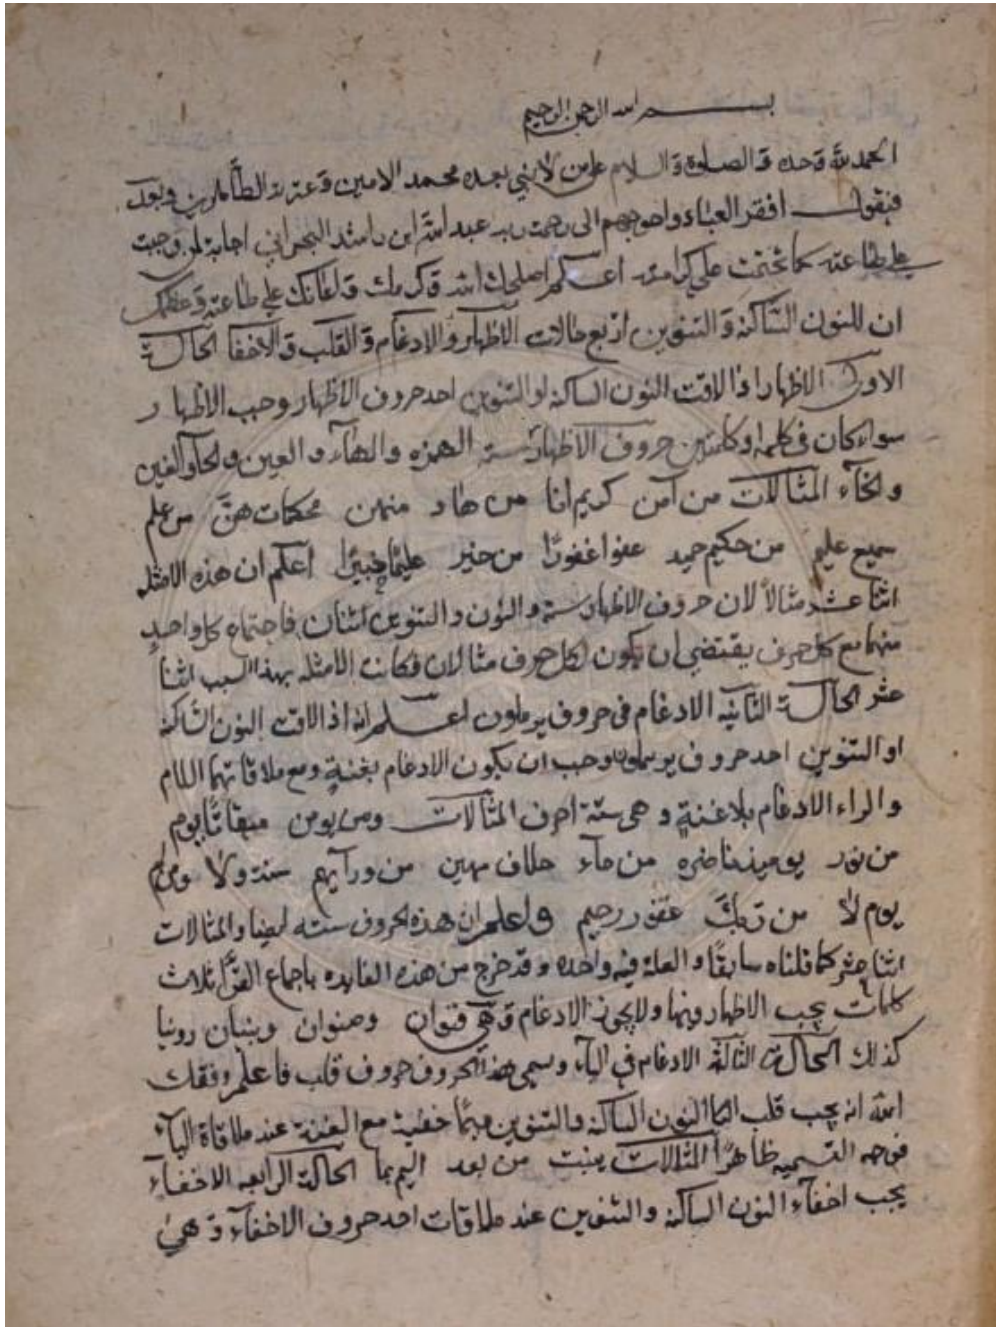 بسم الله الرحمن الرحيم
الحمد لله وحده والصلوة والسلام على من لا نبي بعده محمد الامين وعترته الطاهرين وبعد
فيقول افقر العباد واحوجهم الى رحمت ربه عبد الله ابن راشد البحراني اجابة لمن وجبت
علي طاعته كما تحتمت علي كرامته اعلم اصلحك الله وكرمك واعانك علي طاعته وعظمك
ان للنون الساكنة والتنوين اربع حالات الاظهار والادغام والقلب والاخفا الحالة
الاولى الاظهار اذا لاقت النون الساكنة او التنوين احد حروف الاظهار وجب الاظهار
سواء كان في كلمة او كلمتين حروف الاظهار ستة الهمزه والهاء والعين والحاء والغين
والخاء المثالات من آمن كريم انا من هاد منهن محكمات هنّ من علم
سميع عليم من حكيم حميد عفوا غفورًا من خير عليمًا خبيرًا اعلم ان هذه الامثله
اثنا عشر مثالاً لان حروف الاظهار ستة والنون والتنوين اثنان فاجتماع كل واحدٍ
منهما مع كل حرف يقتضي ان يكون لكل حرف مثالان فكانت الامثله بهذا السبب اثنا
عشر الحالة الثانيه الادغام في حروف يرملون اعلم انه اذا لاقت النون الساكنة
او التنوين احد حروف يرملون وجب ان يكون الادغام بغنةٍ ومع ملاقاتهما اللام
والراء الادغام بلا غنةٍ وهي ستة احرف المثالات ومن يومن ميقاتًا يوم
من نور يوميذ ناضره من ماء حلاف مهين من ورآيهم سنة ولا ومن لم
يوم لا من ربك غفور رحيم واعلم ان هذه الحروف سته ايضا والمثالات
اثنا عشر كما قلناه سابقًا والعلة فيه واحده وقد خرج من هذه الفايده باجماع القرّا ثلاث
كلمات يجب الاظهار فيها ولا يجوز الادغام وهي قنوان وصنوان وبنيان
كذلك الحالة الثالثة الادغام في الباء وسمي هذه الحروف حروف قلب فاعلم وفقك
الله انه يجب قلب النون الساكنة والتنوين ميمًا خفية مع الغنة عند ملاقاة الباء
فوجه التسميه ظاهرًا المثالات ينبت من بعد اليم بما الحالة الرابعه الاخفاء
يجب اخفاء النون الساكنة والتنوين عند ملاقات احد حروف الاخفاء وهي